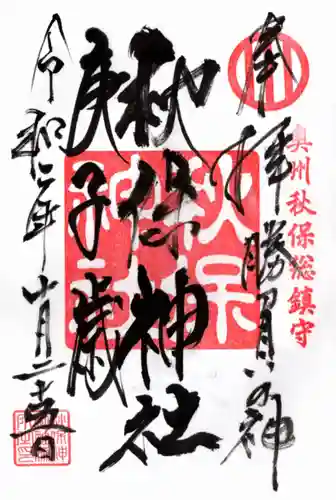 奉拝 勝負の神
奥州秋保総鎮守
秋保神社
庚子歳
令和二年十月二十五日